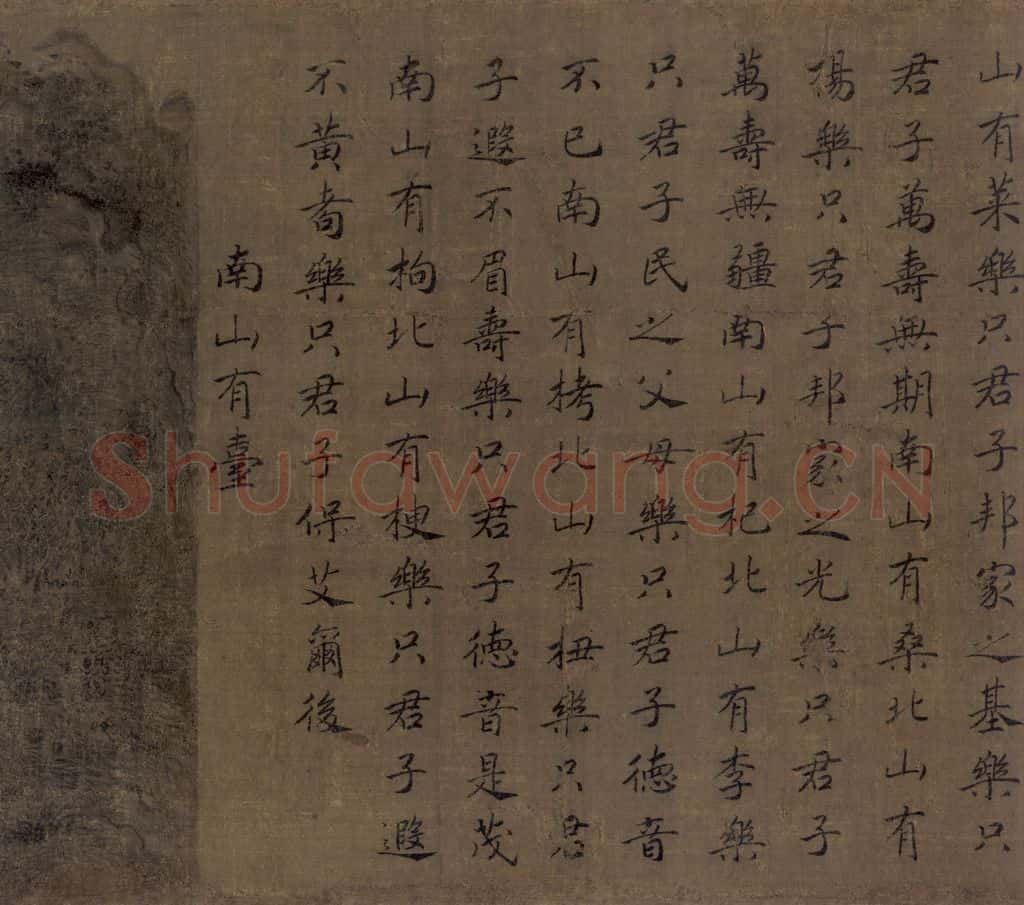 山有萊樂只君子邦家之基樂只
君子萬壽無期南山有桑北山有
楊樂只君子邦家之光樂只君子
萬壽無疆南山有杞北山有李樂
只君子民之父母樂只君子德音
不已南山有栲北山有杻樂只君
子遐不眉壽樂只君子德音是茂
南山有枸北山有楰樂只君子遐
不黃耇樂只君子保艾爾後
南山有臺
Shufawang.CN